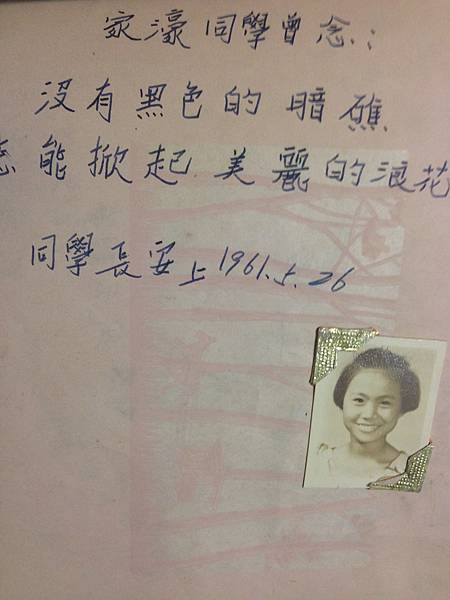 家濠同學曾念：
沒有黑色的暗礁
怎能掀起美麗的浪花
同學長安上1961.5.26